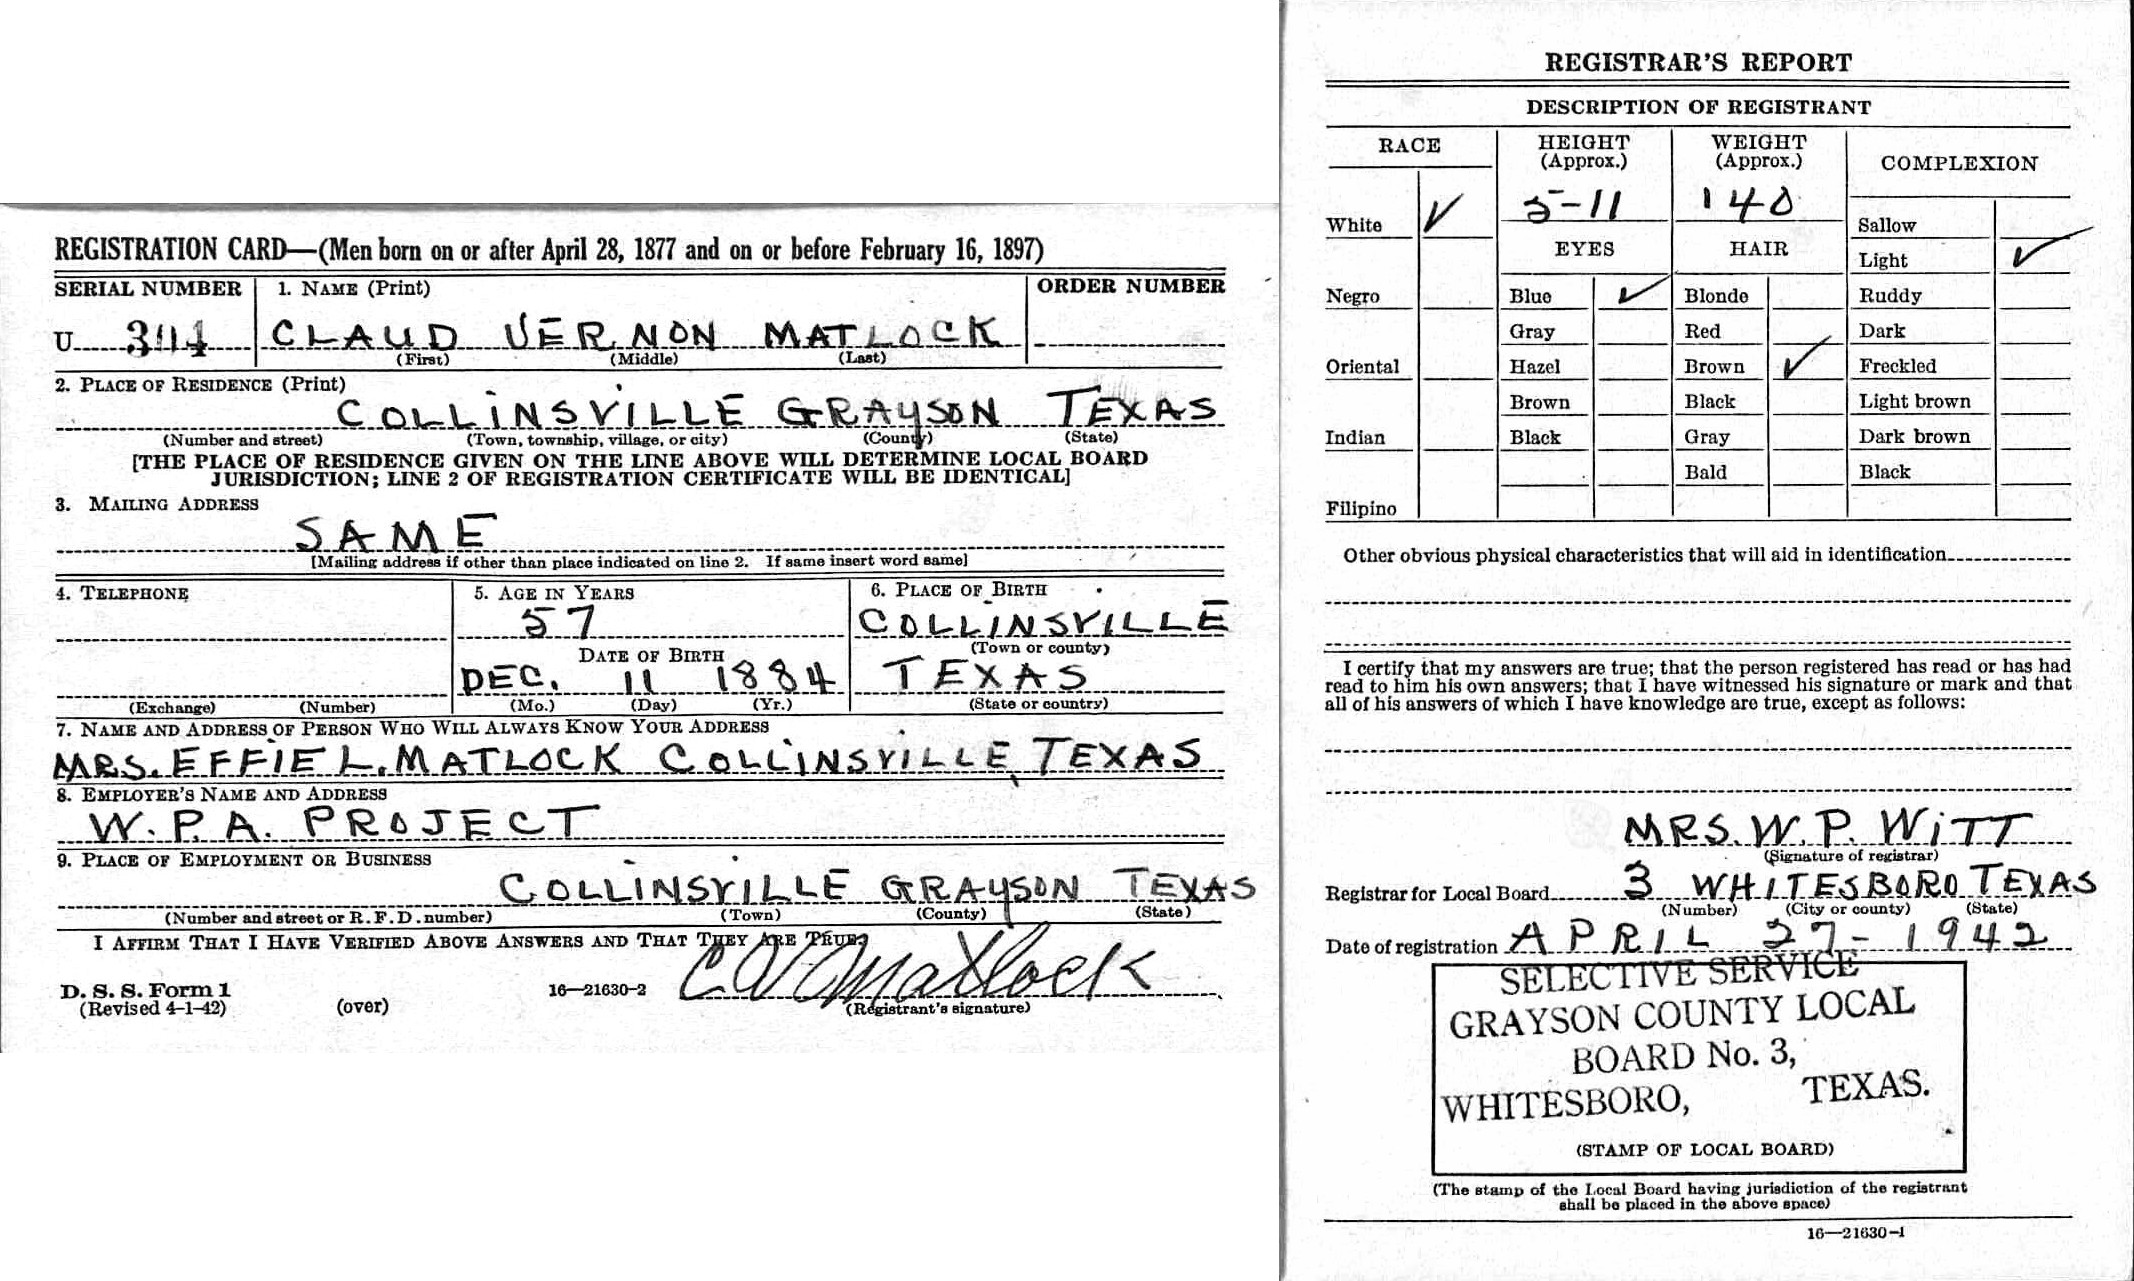 REGISTRATION CARD—(Men born on or after April 28, 1877 and on or before February 16, 1897)
SERIAL NUMBER 1. NAME (Print) ORDER NUMBER
U CLAUD VERNON MATLOCK
(First) (Middle) (Last)
2. PLACE OF RESIDENCE (Print)
COLLINSVILLE GRAYSON TEXAS
(Number and street) (Town, township, village, or city) (County) (State)
[THE PLACE OF RESIDENCE GIVEN ON THE LINE ABOVE WILL DETERMINE LOCAL BOARD
JURISDICTION; LINE 2 OF REGISTRATION CERTIFICATE WILL BE IDENTICAL]
3. MAILING ADDRESS
SAME
[Mailing address if other than place indicated on line 2. If same insert word same]
4. TELEPHONE 5. AGE IN YEARS 6. PLACE OF BIRTH
57 COLLINSVILLE
DATE OF BIRTH (Town or county)
DEC. 11 1884 TEXAS
(Exchange) (Number) (Mo.) (Day) (Yr.) (State or country)
7. NAME AND ADDRESS OF PERSON WHO WILL ALWAYS KNOW YOUR ADDRESS
MRS. EFFIE L. MATLOCK COLLINSVILLE, TEXAS
8. EMPLOYER'S NAME AND ADDRESS
W. P. A. PROJECT
9. PLACE OF EMPLOYMENT OR BUSINESS
COLLINSVILLE GRAYSON TEXAS
(Number and street or R. F. D. number) (Town) (County) (State)
I AFFIRM THAT I HAVE VERIFIED ABOVE ANSWERS AND THAT THEY ARE TRUE.
C V Matlock
D. S. S. Form 1 16—21630-2
(Revised 4-1-42) (over) (Registrant's signature)
REGISTRAR'S REPORT
DESCRIPTION OF REGISTRANT
RACE HEIGHT (Approx.) WEIGHT (Approx.) COMPLEXION
5-11 140
White Sallow
EYES HAIR Light
Negro Blue Blonde Ruddy
Gray Red Dark
Oriental Hazel Brown Freckled
Brown Black Light brown
Indian Black Gray Dark brown
Bald Black
Filipino
Other obvious physical characteristics that will aid in identification
I certify that my answers are true; that the person registered has read or has had
read to him his own answers; that I have witnessed his signature or mark and that
all of his answers of which I have knowledge are true, except as follows:
MRS. W. P. WITT
(Signature of registrar)
Registrar for Local Board 3 WHITESBORO TEXAS
(Number) (City or county) (State)
Date of registration APRIL 27-1942
SELECTIVE SERVICE
GRAYSON COUNTY LOCAL
BOARD No. 3,
WHITESBORO, TEXAS.
(STAMP OF LOCAL BOARD)
(The stamp of the Local Board having jurisdiction of the registrant
shall be placed in the above space)
16—21630-1